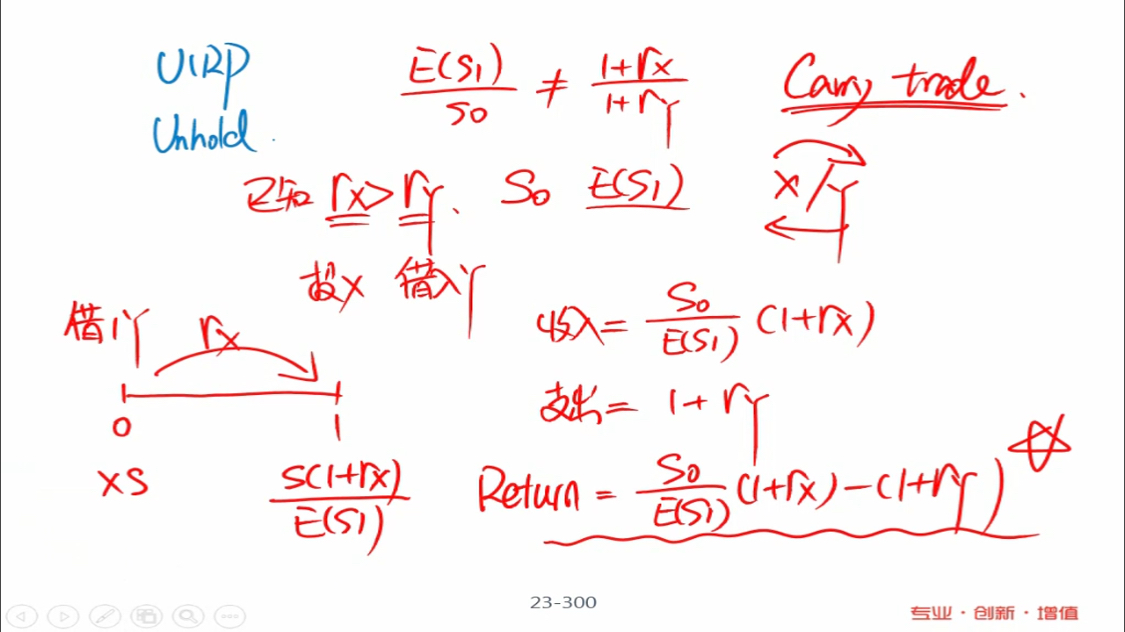 UIRP
Unhold.
E(S1)/S0 ≠ (1+rx)/(1+rY)
Carry trade.
X/Y
已知 rx>rY. S0 E(S1)
投X 借入Y
借1Y rx
0 1
XS S(1+rx)/E(S1)
收入= S0/E(S1) (1+rx)
支出= 1+rY
Return = S0/E(S1) (1+rx)-(1+rY)
23-300
专业·创新·增值